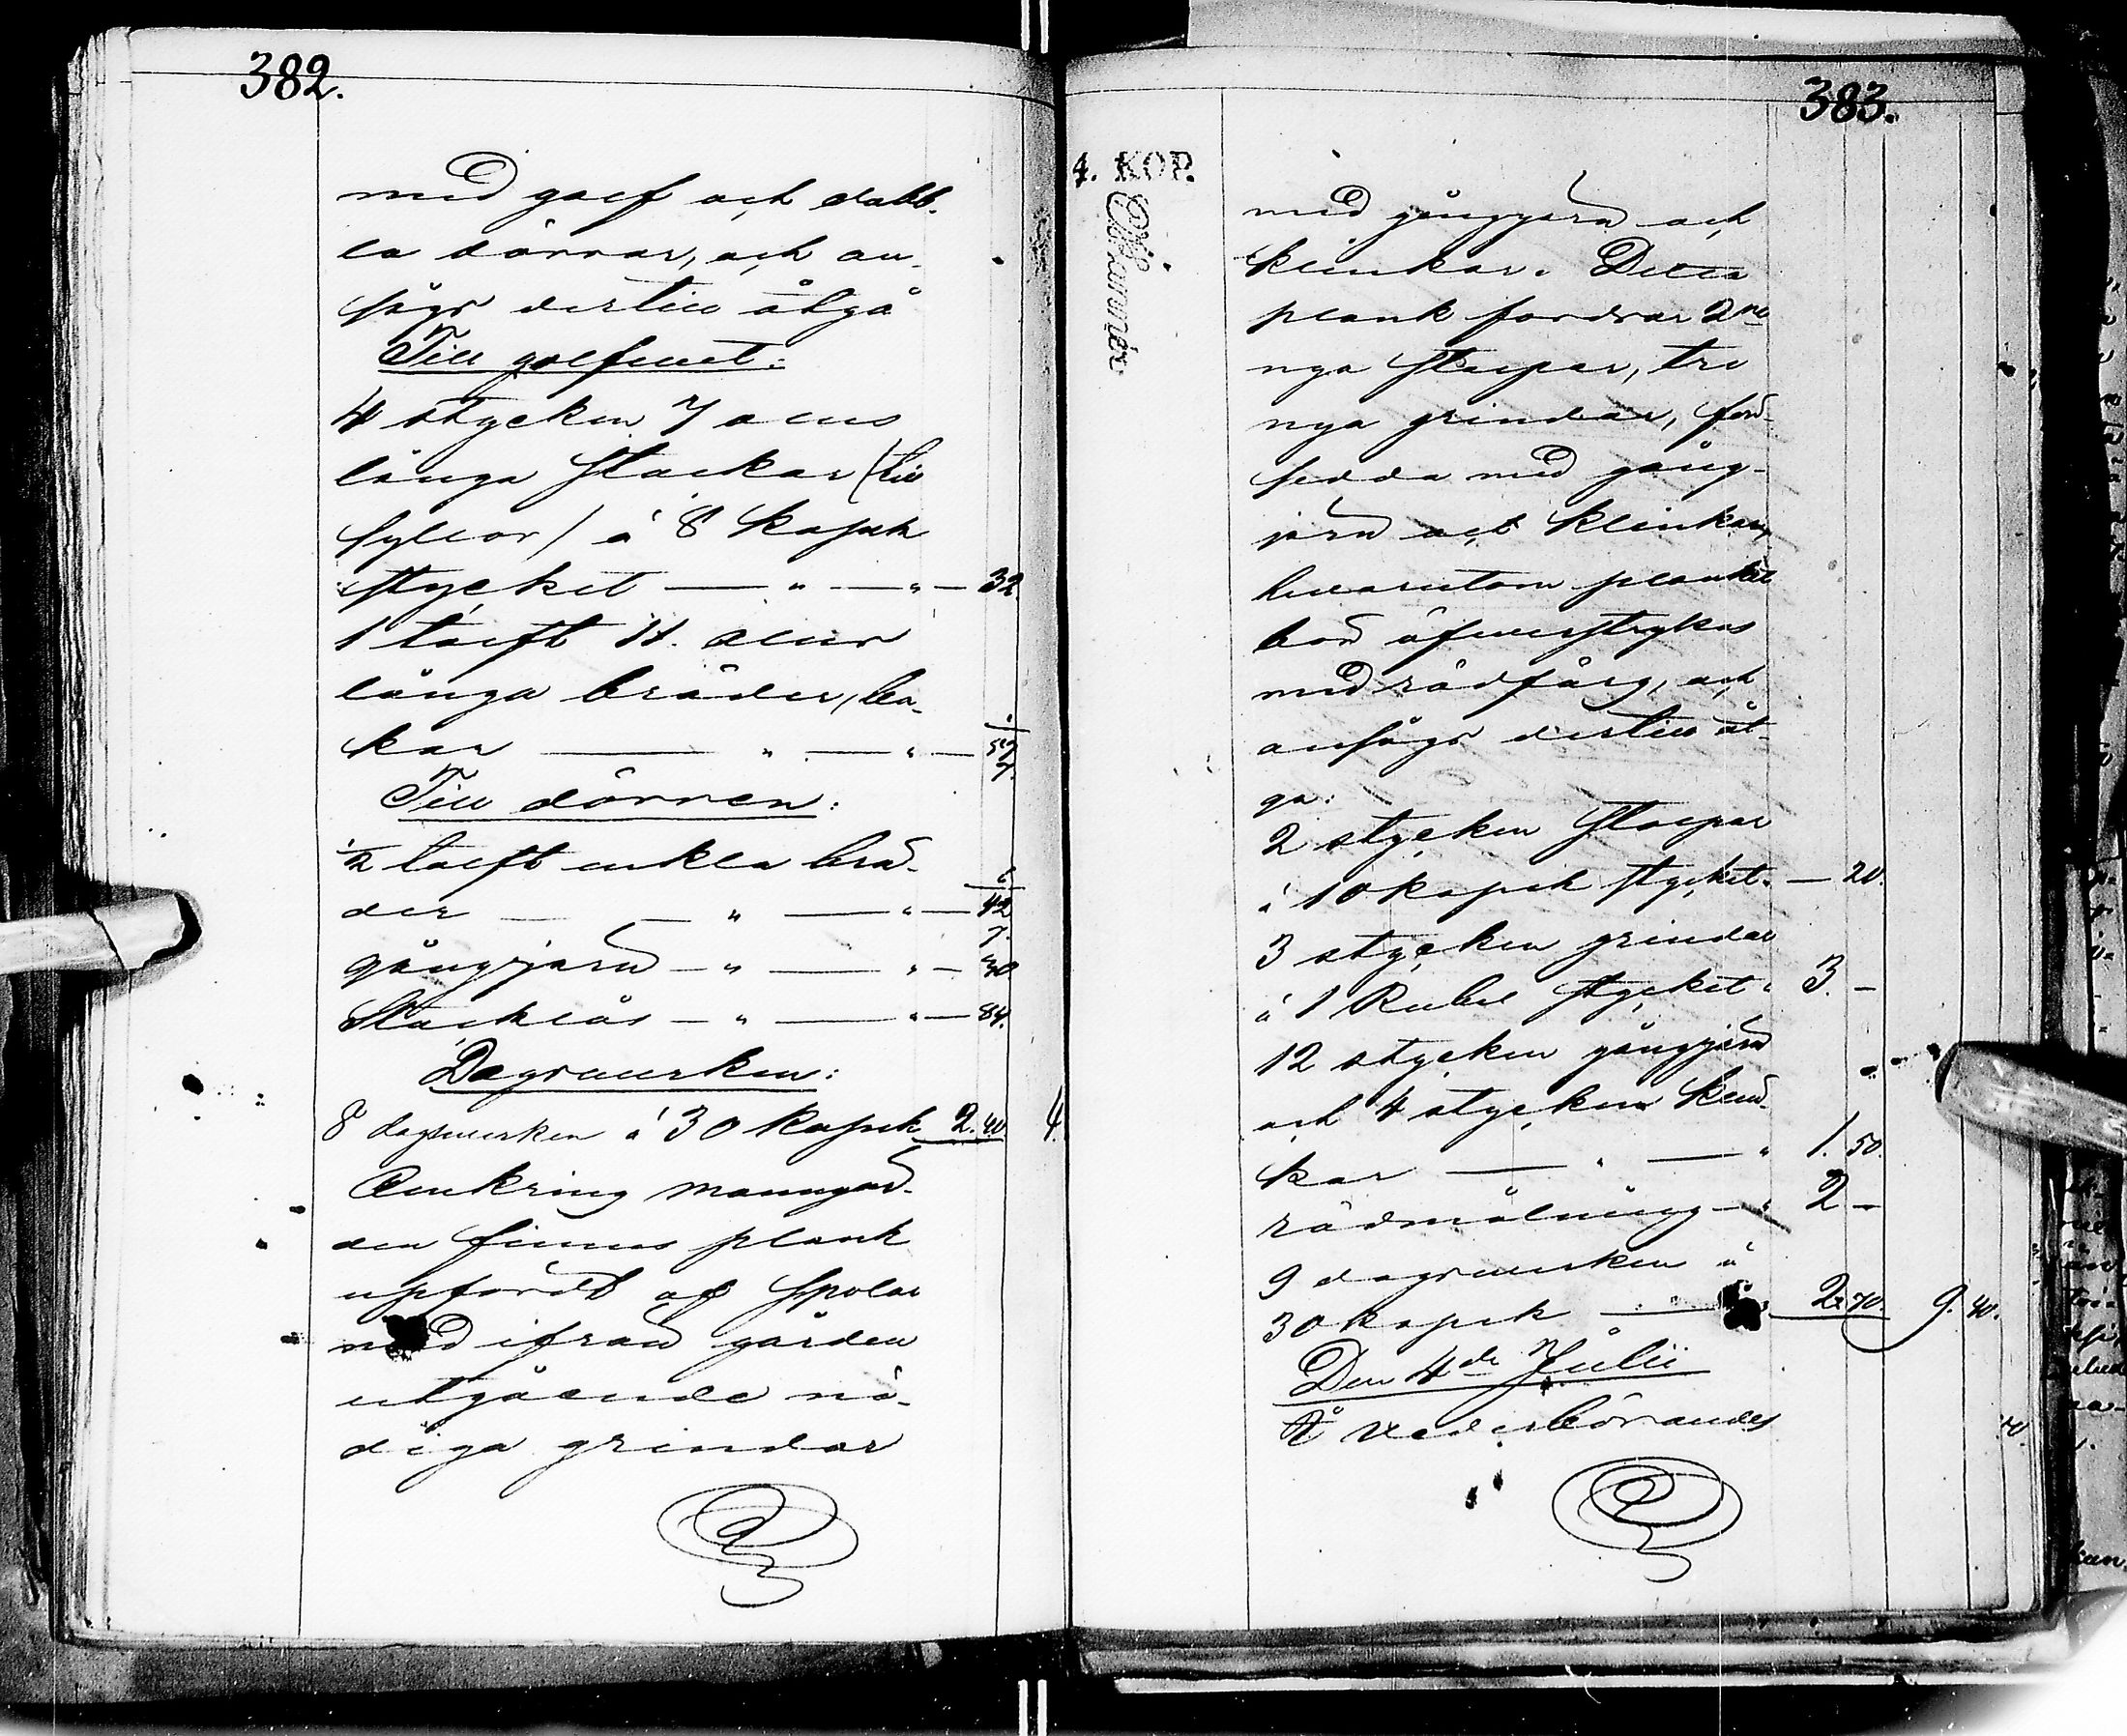 382.
med golf och dubb-
la dörrar, och an-
sågs dertill åtgå
Till golfvet:
4 stycken 7 alns
långa stockar (till
syllor) à 8 kopek
stycket — " — " — 32.
1 tolft 11. alnar
långa bräder, ba-
kar — " — " — 57 1/7.
Till dörren:
1/2 tolft enkla brä-
der — — " — " — 42 6/7.
gångjern — " — " — 30
Stocklås — " — " — 84.
Dagsverken:
8 dagsverken à 30 kopek 2. 40. 4.
Omkring manngår-
den finnes plank
upfördt af spolar
med ifrån gården
utgående nö-
diga grindar
383.
4. KOP.
med gångjern och
klinkor. Detta
plank fordrar 2ne
nya stolpar, tre
nya grindar, för-
sedda med gång-
jern och klinkor,
hvarutom planket
bör öfverstrykas
med rödfärg, och
ansågs dertill åt-
gå:
2 stycken stolpar
à 10 kopek stycket. — 20.
3 stycken grindar
à 1 Rubel stycket. 3. —
12 stycken gångjern
och 4 stycken klin-
kor — " — " 1. 50.
rödmålning — " 2 —
9 dagsverken à
30 kopek — 2. 70. 9. 40.
Den 4de Julii
Å vederbörandes